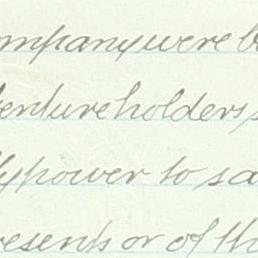 ompany were b
enture holders
y power to sa
esents or of th